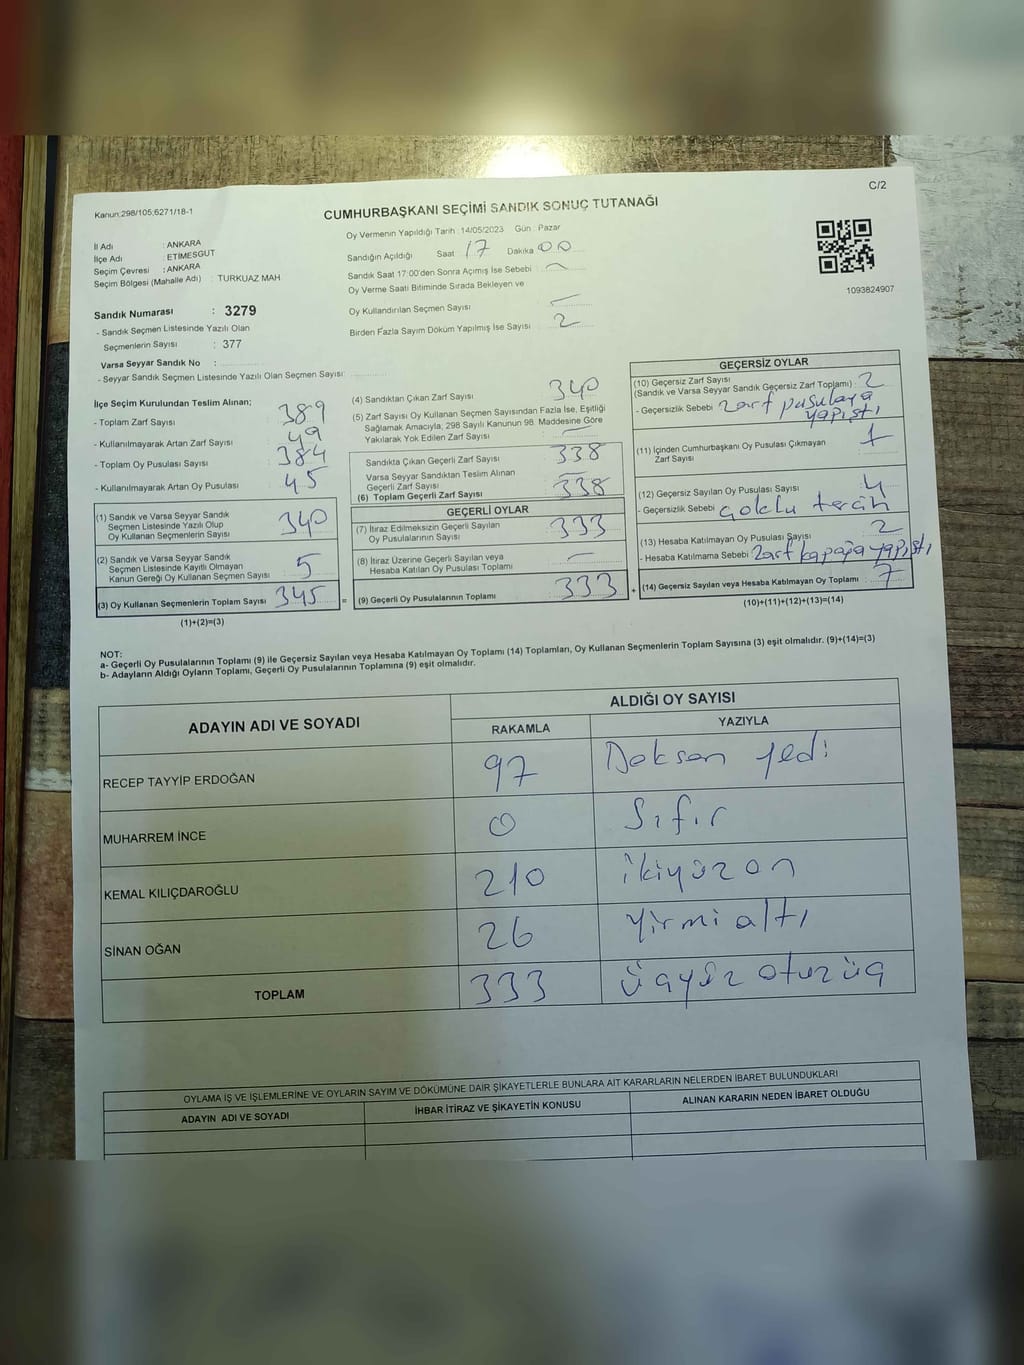 C/2
Kanun:298/105;6271/18-1
CUMHURBAŞKANI SEÇİMİ SANDIK SONUÇ TUTANAĞI
İl Adı : ANKARA
İlçe Adı : ETİMESGUT
Seçim Çevresi : ANKARA
Seçim Bölgesi (Mahalle Adı) : TURKUAZ MAH
Sandık Numarası : 3279
- Sandık Seçmen Listesinde Yazılı Olan
Seçmenlerin Sayısı : 377
Varsa Seyyar Sandık No :
- Seyyar Sandık Seçmen Listesinde Yazılı Olan Seçmen Sayısı:
Oy Vermenin Yapıldığı Tarih : 14/05/2023 Gün : Pazar
Sandığın Açıldığı Saat 17 Dakika 00
Sandık Saat 17:00'den Sonra Açımış İse Sebebi : -
Oy Verme Saati Bitiminde Sırada Bekleyen ve
Oy Kullandırılan Seçmen Sayısı : -
Birden Fazla Sayım Döküm Yapılmış İse Sayısı : 2
1093824907
İlçe Seçim Kurulundan Teslim Alınan;
- Toplam Zarf Sayısı : 389
- Kullanılmayarak Artan Zarf Sayısı : 49
- Toplam Oy Pusulası Sayısı : 384
- Kullanılmayarak Artan Oy Pusulası : 45
(1) Sandık ve Varsa Seyyar Sandık
Seçmen Listesinde Yazılı Olup
Oy Kullanan Seçmenlerin Sayısı : 340
(2) Sandık ve Varsa Seyyar Sandık
Seçmen Listesinde Kayıtlı Olmayan
Kanun Gereği Oy Kullanan Seçmen Sayısı : 5
(3) Oy Kullanan Seçmenlerin Toplam Sayısı : 345 =
(1)+(2)=(3)
(4) Sandıktan Çıkan Zarf Sayısı : 340
(5) Zarf Sayısı Oy Kullanan Seçmen Sayısından Fazla İse, Eşitliği
Sağlamak Amacıyla; 298 Sayılı Kanunun 98. Maddesine Göre
Yakılarak Yok Edilen Zarf Sayısı : -
Sandıkta Çıkan Geçerli Zarf Sayısı : 338
Varsa Seyyar Sandıktan Teslim Alınan
Geçerli Zarf Sayısı : -
(6) Toplam Geçerli Zarf Sayısı : 338
GEÇERLİ OYLAR
(7) İtiraz Edilmeksizin Geçerli Sayılan
Oy Pusulalarının Sayısı : 333
(8) İtiraz Üzerine Geçerli Sayılan veya
Hesaba Katılan Oy Pusulası Toplamı : -
(9) Geçerli Oy Pusulalarının Toplamı : 333 +
GEÇERSİZ OYLAR
(10) Geçersiz Zarf Sayısı
(Sandık ve Varsa Seyyar Sandık Geçersiz Zarf Toplamı) : 2
- Geçersizlik Sebebi : zarf pusulaya
yapıştı
(11) İçinden Cumhurbaşkanı Oy Pusulası Çıkmayan
Zarf Sayısı : 1
(12) Geçersiz Sayılan Oy Pusulası Sayısı : 4
- Geçersizlik Sebebi : çoklu tercih
(13) Hesaba Katılmayan Oy Pusulası Sayısı : 2
- Hesaba Katılmama Sebebi : zarf kapağa yapıştı
(14) Geçersiz Sayılan veya Hesaba Katılmayan Oy Toplamı : 7
(10)+(11)+(12)+(13)=(14)
NOT:
a- Geçerli Oy Pusulalarının Toplamı (9) ile Geçersiz Sayılan veya Hesaba Katılmayan Oy Toplamı (14) Toplamları, Oy Kullanan Seçmenlerin Toplam Sayısına (3) eşit olmalıdır. (9)+(14)=(3)
b- Adayların Aldığı Oyların Toplamı, Geçerli Oy Pusulalarının Toplamına (9) eşit olmalıdır.
ADAYIN ADI VE SOYADI ALDIĞI OY SAYISI
RAKAMLA YAZIYLA
RECEP TAYYİP ERDOĞAN 97 Doksan yedi
MUHARREM İNCE 0 Sıfır
KEMAL KILIÇDAROĞLU 210 ikiyüzon
SİNAN OĞAN 26 Yirmi altı
TOPLAM 333 üçyüz otuzüç
OYLAMA İŞ VE İŞLEMLERİNE VE OYLARIN SAYIM VE DÖKÜMÜNE DAİR ŞİKAYETLERLE BUNLARA AİT KARARLARIN NELERDEN İBARET BULUNDUKLARI
ADAYIN ADI VE SOYADI İHBAR İTİRAZ VE ŞİKAYETİN KONUSU ALINAN KARARIN NEDEN İBARET OLDUĞU